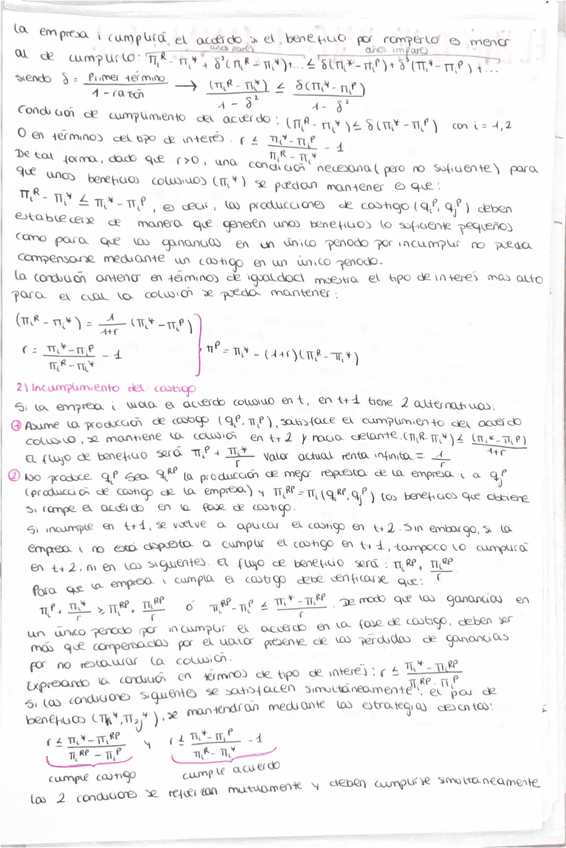 La empresa i cumplirá el acuerdo si el beneficio por romperlo es menor
años pares años impares
al de cumplirlo: πiR - πi* + δ²(πiR - πi*) + ... ≤ δ(πi* - πiP) + δ³(πi* - πiP) + ...
siendo δ = Primer término / 1 - razón → (πiR - πi*) / 1 - δ² ≤ δ(πi* - πiP) / 1 - δ²
Condición de cumplimiento del acuerdo: (πiR - πi*) ≤ δ(πi* - πiP) con i = 1,2
O en términos del tipo de interés: r ≤ πi* - πiP / πiR - πi* - 1
De tal forma, dado que r>0, una condición necesaria (pero no suficiente) para
que unos beneficios colusivos (πi*) se puedan mantener es que:
πiR - πi* ≤ πi* - πiP, es decir, las producciones de castigo (qiP, qjP) deben
establecerse de manera que generen unos beneficios lo suficiente pequeños
como para que las ganancias en un único periodo por incumplir no pueda
compensarse mediante un castigo en un único periodo.
La condición anterior en términos de igualdad muestra el tipo de interés más alto
para el cual la colusión se pueda mantener:
(πiR - πi*) = 1/1+r (πi* - πiP)
r = πi* - πiP / πiR - πi* - 1
πP = πi* - (1+r)(πiR - πi*)
2) Incumplimiento del castigo
Si la empresa i viola el acuerdo colusivo en t, en t+1 tiene 2 alternativas:
① Asume la producción de castigo (qiP, πiP), satisface el cumplimiento del acuerdo
colusivo, se mantiene la colusión en t+2 y hacia delante. (πiR - πi*) ≤ (πi* - πiP) / 1+r
El flujo de beneficio será πiP + πi*/r valor actual renta infinita = 1/r
② No produce qiP. Sea qiRP la producción de mejor respuesta de la empresa i a qjP
(producción de castigo de la empresa) y πiRP = πi(qiRP, qjP) los beneficios que obtiene
si rompe el acuerdo en la fase de castigo.
Si incumple en t+1, se vuelve a aplicar el castigo en t+2. Sin embargo, si la
empresa i no está dispuesta a cumplir el castigo en t+1, tampoco lo cumplirá
en t+2, ni en los siguientes. El flujo de beneficio será: πiRP + πiRP/r
Para que la empresa i cumpla el castigo debe verificarse que:
πiP + πi*/r ≥ πiRP + πiRP/r ó πiRP - πiP ≤ πi* - πiRP / r. De modo que las ganancias en
un único periodo por incumplir el acuerdo en la fase de castigo, deben ser
más que compensadas por el valor presente de las pérdidas de ganancias
por no restaurar la colusión.
Expresando la condición en términos de tipo de interés: r ≤ πi* - πiRP / πiRP - πiP
Si las condiciones siguientes se satisfacen simultáneamente, el par de
beneficios (π1*, π2*), se mantendrán mediante las estrategias descritas:
r ≤ πi* - πiRP / πiRP - πiP y r ≤ πi* - πiP / πiR - πi* - 1
cumple castigo cumple acuerdo
Las 2 condiciones se refuerzan mutuamente y deben cumplirse simultáneamente